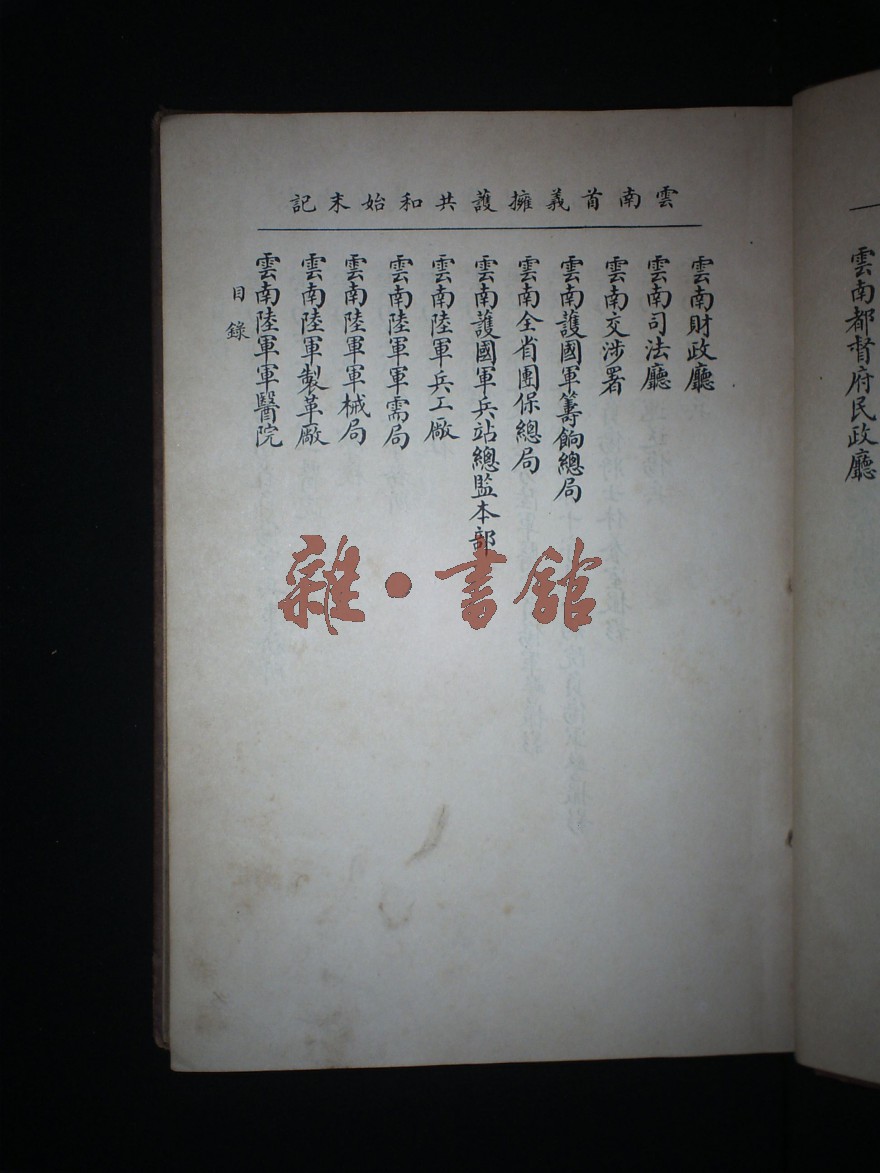 雲南都督府民政廳
雲南首義擁護共和始末記
雲南財政廳
雲南司法廳
雲南交涉署
雲南護國軍籌餉總局
雲南全省團保總局
雲南護國軍兵站總監本部
雲南陸軍兵工廠
雲南陸軍軍需局
雲南陸軍軍械局
雲南陸軍製革廠
雲南陸軍軍醫院
目錄
雜·書館